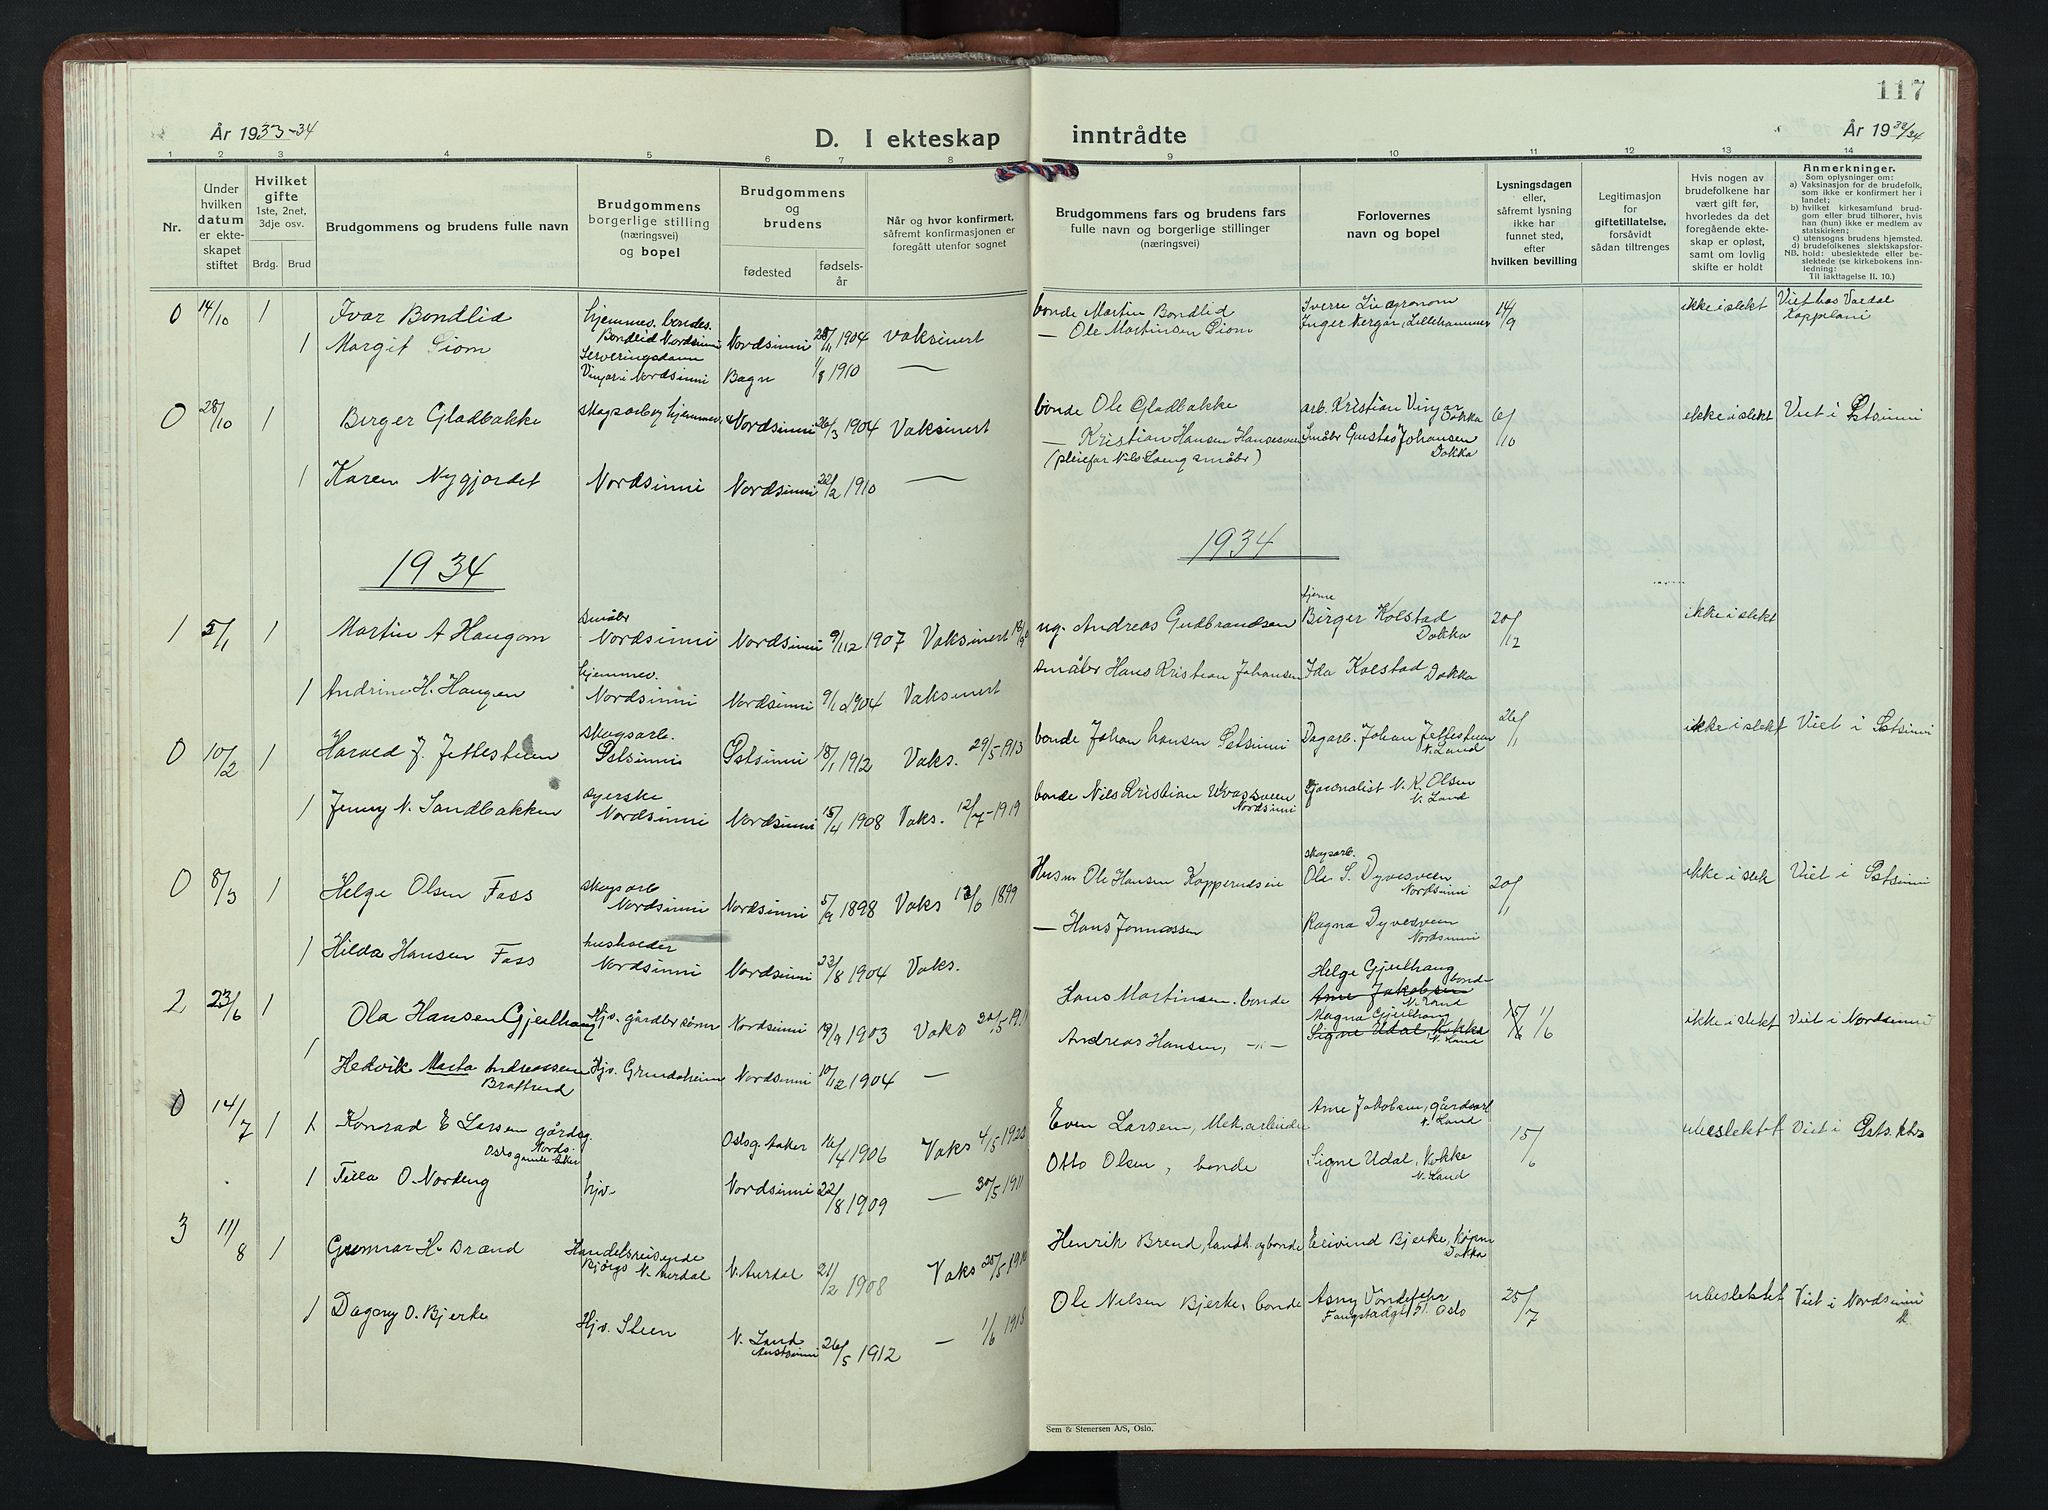 117
År 1933-34
D. I ekteskap inntrådte
År 1933/34
1 2 3 4 5 6 7 8 9 10 11 12 13 14
Nr.
Under hvilken datum er ekteskapet stiftet
Hvilket gifte
1ste, 2net, 3dje osv.
Brdg. Brud
Brudgommens og brudens fulle navn
Brudgommens borgerlige stilling (næringsvei) og bopel
Brudgommens og brudens
fødested
fødselsår
Når og hvor konfirmert, såfremt konfirmasjonen er foregått utenfor sognet
Brudgommens fars og brudens fars fulle navn og borgerlige stillinger (næringsvei)
Forlovernes navn og bopel
Lysningsdagen eller, såfremt lysning ikke har funnet sted, efter hvilken bevilling
Legitimasjon for giftetillatelse, forsåvidt sådan tiltrenges
Hvis nogen av brudefolkene har vært gift før, hvorledes da det foregående ekteskap er opløst, samt om lovlig skifte er holdt
Anmerkninger.
Som oplysninger om:
a) Vaksinasjon for de brudefolk, som ikke er konfirmert her i landet;
b) hvilket kirkesamfund brudgom eller brud tilhører, hvis han (hun) ikke er medlem av statskirken;
c) utensogns brudens hjemsted.
d) brudefolkenes slektskapsforhold: ubeslektede eller beslektede (se kirkebokens innledning:
NB.
Til iakttagelse II. 10.)
0 14/10 1 Ivar Bondlid hjemmev. bondes. Bondlid Nordsinni Nordsinni 1904 vaksinert bonde Martin Bondlid Sverre Lie agronom 14/9 ikke i slekt Viet hos Vardal
1 Margit Siom Serveringsdame Vingar i Nordsinni Bagn 1/8 1910 — — Ole Martinsen Siom Inger Nergår, Lillehammer
0 28/10 1 Birger Gladbakke skogsarb og hjemmev. Nordsinni 26/3 1904 Vaksinert bonde Ole Gladbakke arb. Kristian Vingar Dokka 6/10 ikke i slekt Viet i Østsinni
— Kristian Hansen Småbr Gustav Johansen Dokka
(pleiefar Nils Loeng småbr)
1 Karen Nygjordet Nordsinni Nordsinni 22/2 1910 —
1934
1934
1 5/1 1 Martin A Haugom småbr Nordsinni Nordsinni 9/12 1907 Vaksinert ug. Andreas Gudbrandsen Birger Kolstad Dokka 20/12 ikke i slekt
1 Andrine H. Haugen hjemmev. Nordsinni Nordsinni 9/1 1904 Vaksinert småbr Hans Kristian Johansen Ida Kolstad Dokka
0 10/2 1 Harald J. Jettestuen skogsarb. Østsinni Østsinni 18/1 1912 Vaks. 29/5-1913 bonde Johan Hansen Østsinni Dagarb. Johan Jettestuen N. Land 26/1 ikke i slekt Viet i Østsinni
1 Jenny N. Sandbakken syerske Nordsinni Nordsinni 15/4 1908 Vaks. 12/7-1919 bonde Nils Kristian Nordsinni Journalist N. K. Olsen N. Land
0 8/3 1 Helge Olsen Foss skogsarb Nordsinni Nordsinni 5/9 1898 Vaks 13/6 1899 Husm Ole Hansen skogsarb. Ole S. Dyvesveen Nordsinni 20/1 ikke i slek Viet i Østsinni
1 Hilda Hansen Foss husholder Nordsinni Nordsinni 23/8 1904 Vaks. — Hans Jonnassen Ragna Dyvesveen Nordsinni
2 23/6 1 Ola Hansen Gjeulhaug Hjv. gårdbr sønn Nordsinni 19/9 1903 Vaks Hans Martinsen. bonde Helge Gjeulhaug bonde Arne Jakobsen N. Land 15/6 11/6 ikke i slekt Viet i Nordsinni
1 Hedvik Marta Andreassen Bratlund Hjv. Grindaheim Nordsinni 10/12 1904 — Andreas Hansen, -"- Magna Gjeulhaug Signe Udal, Kokke N. Land
0 14/7 1 1 Konrad E Larsen gårdsg. Nords. Oslo gamle Aker Oslo g. Aaker 16/4 1906 Vaks 4/5 1923 Even Larsen, Mek. arbeider Arne Jakobsen, gårdsarb N. Land 15/6 ubeslektet Viet i Østs. k
1 Tilla O. Nordeng hjv. Nordsinni 22/8 1909 — 30/5 1911 Otto Olsen, bonde Signe Udal, Kokke N. Land
3 11/8 1 Gunnar H. Brænd Handelsreisende N. Aurdal N. Aurdal 21/2 1908 Vaks Henrik Brend, landh. og bonde Eivind Bjerke, Kjøpm Dokka
1 Dagny O. Bjerke Hjv. Steen N. Land Austsinni 26/5 1912 — 1/6 1915 Ole Nilsen Bjerke, bonde Asny Oslo 25/7 ubeslektet Viet i Nordsinni k.
Sem & Stenersen A/S, Oslo.